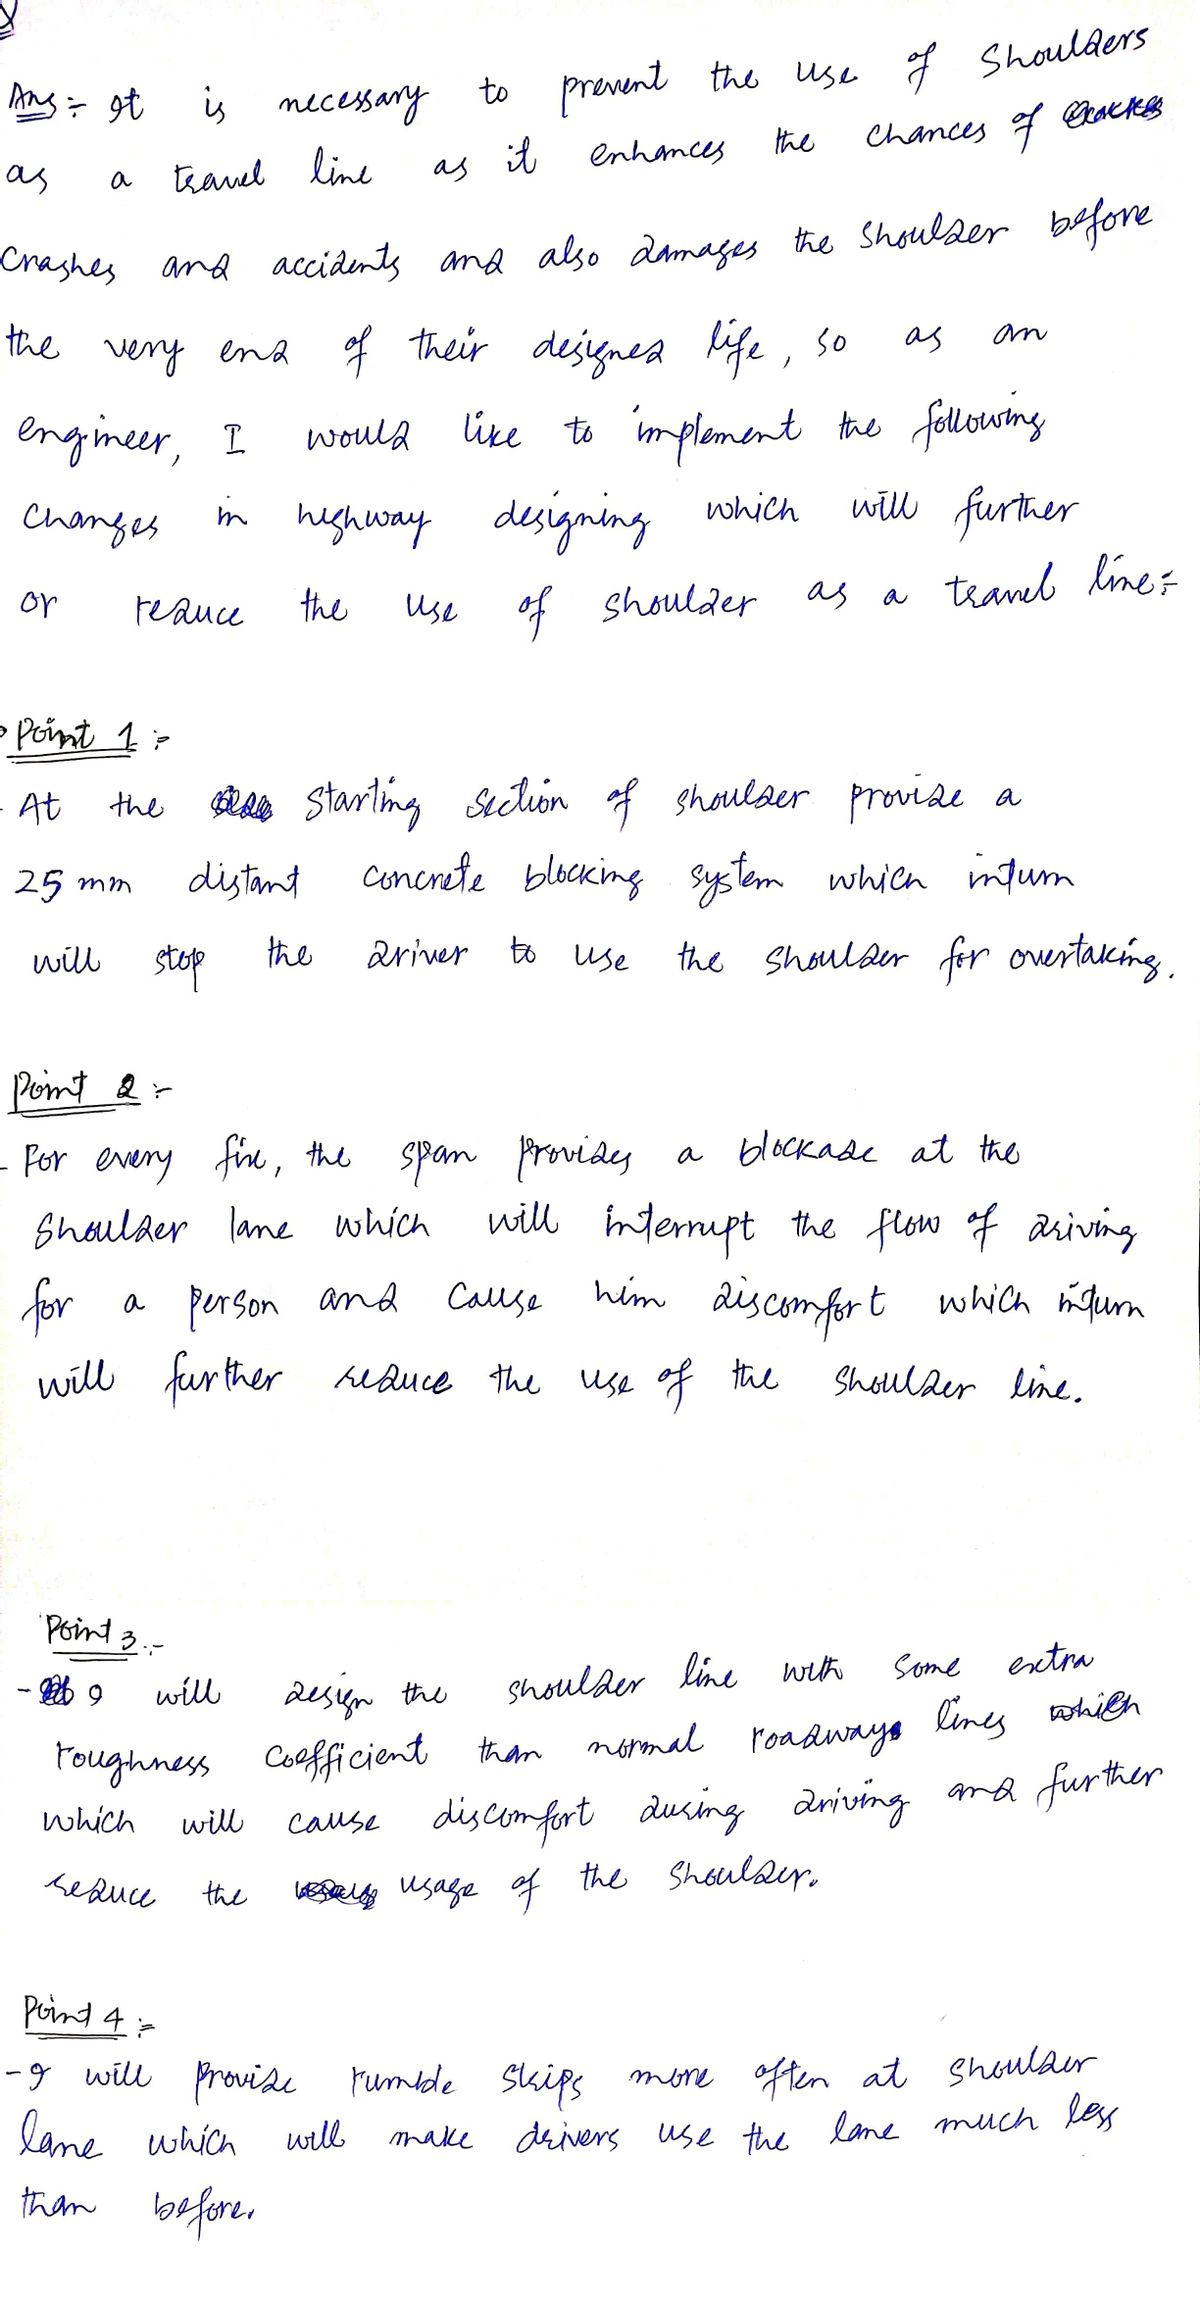 Ans:- It is necessary to prevent the use of shoulders
as a travel line as it enhances the chances of
crashes and accidents and also damages the shoulder before
the very end of their designed life, so as an
engineer, I would like to implement the following
changes in highway designing which will further
or reduce the use of shoulder as a travel line:-
Point 1 :-
- At the starting section of shoulder provide a
25 mm distant concrete blocking system which inturn
will stop the driver to use the shoulder for overtaking.
Point 2 :-
- For every five, the span provides a blockade at the
shoulder lane which will interrupt the flow of driving
for a person and cause him discomfort which inturn
will further reduce the use of the shoulder line.
Point 3 :-
- I will design the shoulder line with some extra
roughness coefficient than normal roadways lines which
which will cause discomfort during driving and further
reduce the usage of the shoulder.
Point 4 :-
- I will provide rumble skips more often at shoulder
lane which will make drivers use the lane much less
than before.